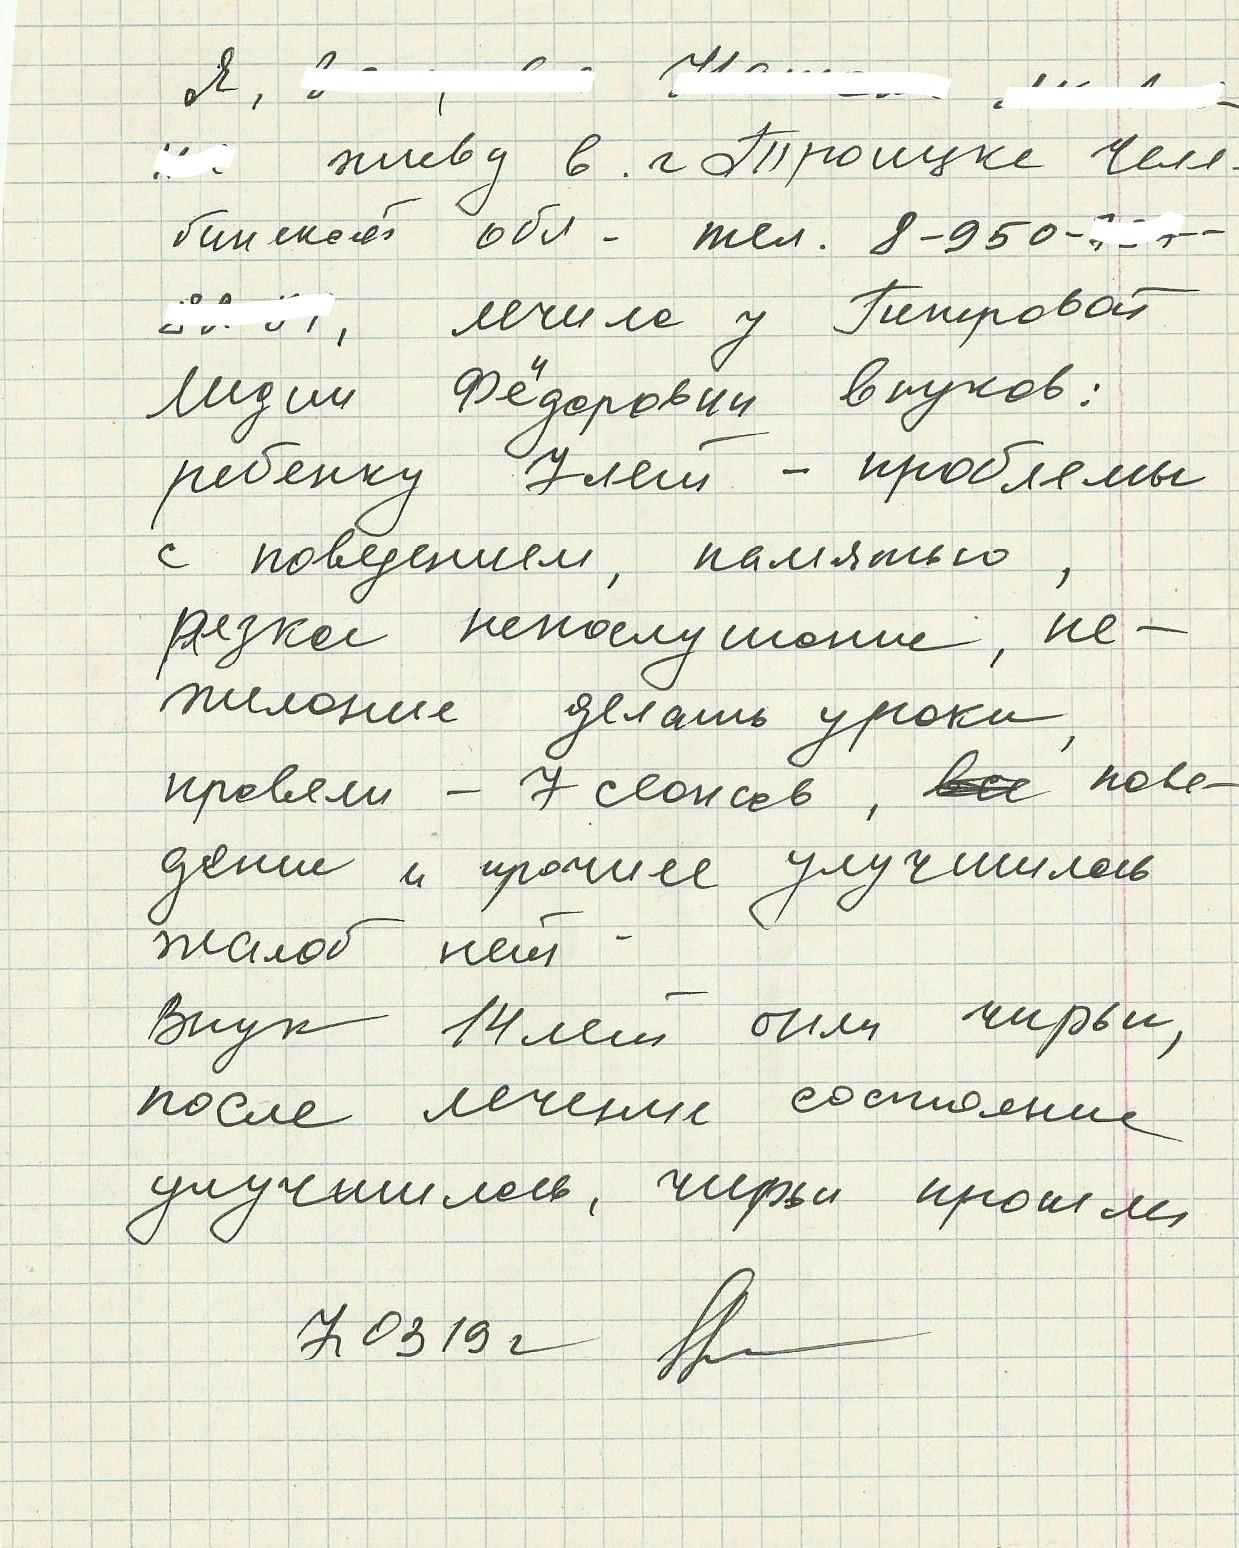 Я,
живу в г Троицке Челя-
бинской обл - тел. 8-950-
, лечила у
Лидии Фёдоровны внуков:
ребенку 7 лет - проблемы
с поведением, памятью,
резкое непослушание, не-
желание делать уроки,
провели - 7 сеансов, все пове-
дение и прочее улучшилось
жалоб нет -
Внук 14 лет были чирьи,
после лечения состояние
улучшилось, чирьи прошли
7 03 19 г